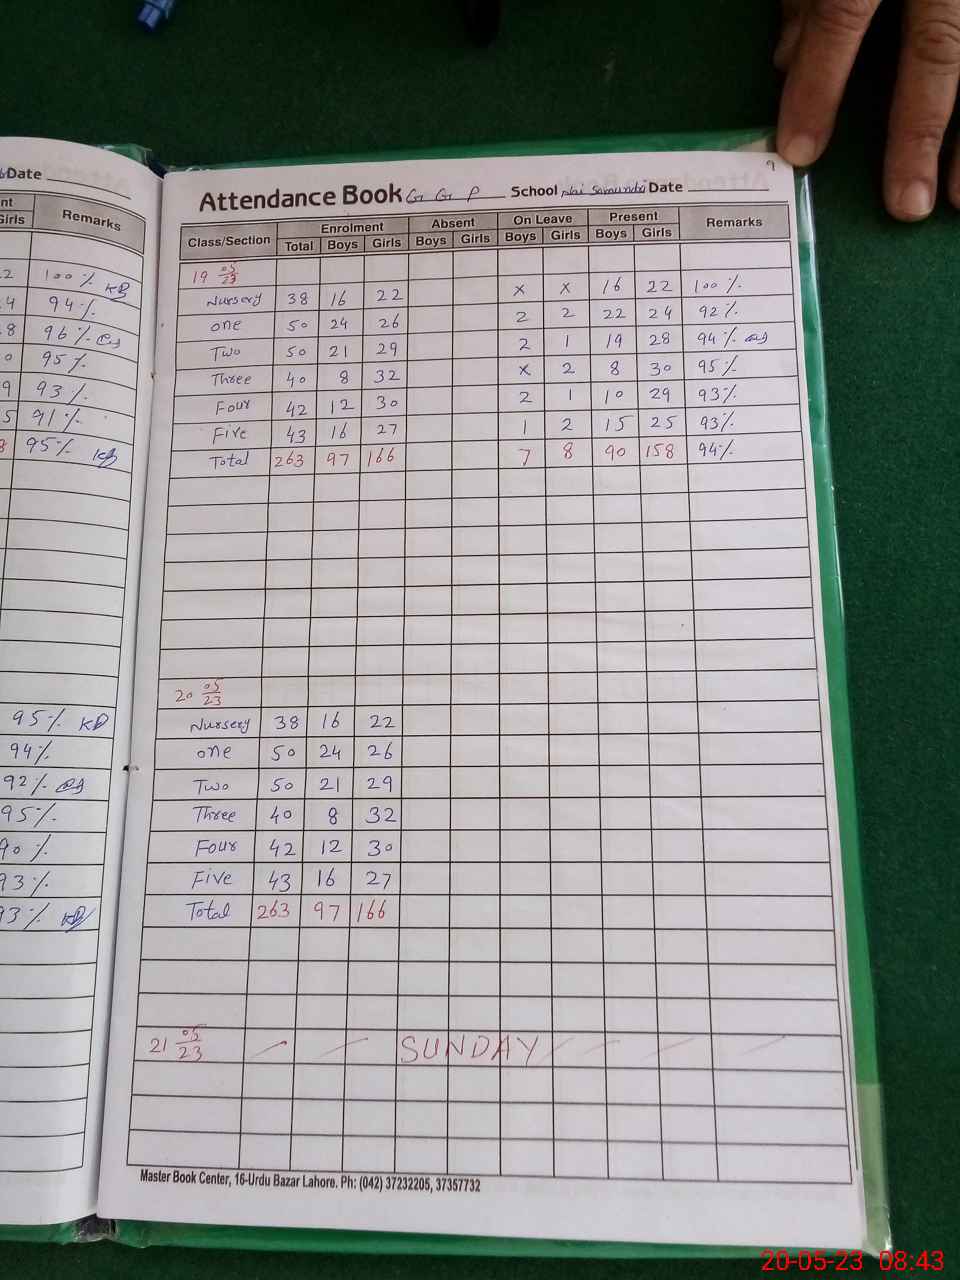 Date
Girls Remarks
2 100 % KB
4 94 %
8 96 %
0 95 %
9 93 %
5 91 %
8 95 % KB
95 % KB
94 %
92 %
95 %
90 %
93 %
93 % KB
9
Attendance Book G G P School Nai Samundri Date
Class/Section Enrolment Absent On Leave Present Remarks
Total Boys Girls Boys Girls Boys Girls Boys Girls
19 05/23
Nursery 38 16 22 x x 16 22 100 %
one 50 24 26 2 2 22 24 92 %
Two 50 21 29 2 1 19 28 94 %
Three 40 8 32 x 2 8 30 95 %
Four 42 12 30 2 1 10 29 93 %
Five 43 16 27 1 2 15 25 93 %
Total 263 97 166 7 8 90 158 94 %
20 05/23
Nursery 38 16 22
one 50 24 26
Two 50 21 29
Three 40 8 32
Four 42 12 30
Five 43 16 27
Total 263 97 166
21 05/23 SUNDAY
Master Book Center, 16-Urdu Bazar Lahore. Ph: (042) 37232205, 37357732
20-05-23 08:43